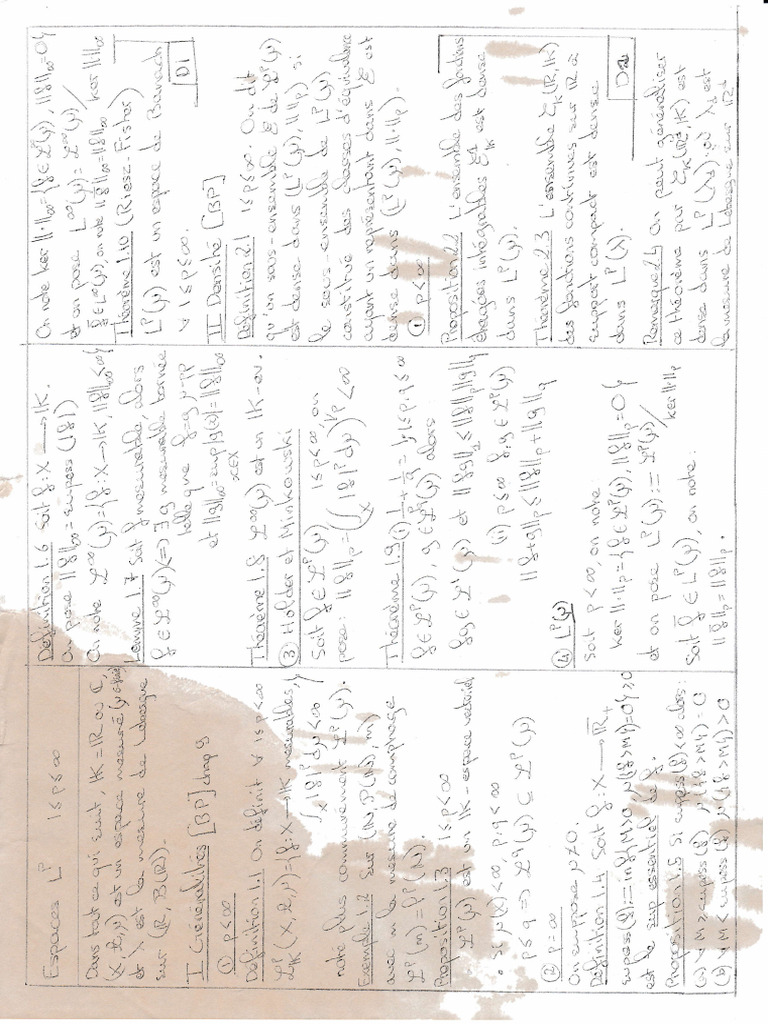 Espaces L^p 1≤p≤∞
Dans tout ce qui suit, IK = IR ou C,
(X, 𝒜, μ) est un espace mesuré
et λ est la mesure de Lebesgue
sur (IR, B(IR)).
I Généralités [BP] chap 9
① p<∞
Définition 1.1 On définit ∀ 1≤p<∞
ℒ^p_IK (X, 𝒜, μ) = {f: X → IK mesurables, ∫_X |f|^p dμ < ∞}
noté plus communément ℒ^p(μ).
Exemple 1.2 Sur (IN, P(IN), m)
avec m la mesure de comptage
ℒ^p(m) = ℓ^p(IN).
Proposition 1.3 1≤p<∞
• ℒ^p(μ) est un IK-espace vectoriel
• Si μ(X)<∞, p,q<∞
p≤q ⟹ ℒ^q(μ) ⊂ ℒ^p(μ)
② p=∞
On suppose μ≠0.
Définition 1.4 Soit f: X → IR̄+
supess(f) := inf{M≥0, μ({f>M})=0}≥0
est le sup essentiel de f.
Proposition 1.5 Si supess(f)<∞ alors:
(a) ∀ M≥supess(f) μ({f>M})=0
(b) ∀ M<supess(f) μ({f>M})>0
Définition 1.6 Soit f: X → IK.
On pose ‖f‖∞ = supess(|f|)
On note ℒ^∞(μ) = {f: X → IK, ‖f‖∞<∞}
Lemme 1.7 Soit f mesurable, alors
f∈ℒ^∞(μ) ⟺ ∃ g mesurable bornée
telle que f=g μ-pp
et ‖g‖∞ = sup_{x∈X} |g(x)| = ‖f‖∞
Théorème 1.8 ℒ^∞(μ) est un IK-ev.
③ Hölder et Minkowski
Soit f∈ℒ^p(μ) 1≤p<∞, on
pose: ‖f‖_p = (∫_X |f|^p dμ)^{1/p} < ∞
Théorème 1.9 (i) 1/p + 1/q = 1 1≤p,q≤∞
f∈ℒ^p(μ), g∈ℒ^q(μ) alors
fg∈ℒ^1(μ) et ‖fg‖_1 ≤ ‖f‖_p ‖g‖_q
(ii) p≤∞ f,g∈ℒ^p(μ)
‖f+g‖_p ≤ ‖f‖_p + ‖g‖_p
④ L^p(μ)
Soit p<∞, on note:
ker ‖·‖_p = {f∈ℒ^p(μ), ‖f‖_p=0}
et on pose L^p(μ) := ℒ^p(μ)/ker‖·‖_p
Soit f̄∈L^p(μ), on note:
‖f̄‖_p = ‖f‖_p.
On note ker ‖·‖∞ = {f∈ℒ^∞(μ), ‖f‖∞=0}
et on pose L^∞(μ) = ℒ^∞(μ)/ker ‖·‖∞
f̄∈L^∞(μ), on note ‖f̄‖∞ = ‖f‖∞
Théorème 1.10 (Riesz-Fisher)
L^p(μ) est un espace de Banach
∀ 1≤p≤∞.
D1
II Densité [BP]
Définition 2.1 1≤p≤∞. On dit
qu'un sous-ensemble ℰ de ℒ^p(μ)
est dense dans (L^p(μ), ‖‖_p) si
le sous-ensemble de L^p(μ)
constitué des classes d'équivalence
ayant un représentant dans ℰ est
dense dans (L^p(μ), ‖·‖_p).
① p<∞
Proposition 2.2 L'ensemble des fonctions
étagées intégrables ℰ^1_IK est dense
dans L^p(μ).
Théorème 2.3 L'ensemble ℰ_K(IR, IK)
des fonctions continues sur IR à
support compact est dense
dans L^p(λ).
Remarque 2.4 On peut généraliser
ce théorème par ℰ_K(IR^d, IK) est
dense dans L^p(λ_d) où λ_d est
la mesure de Lebesgue sur IR^d